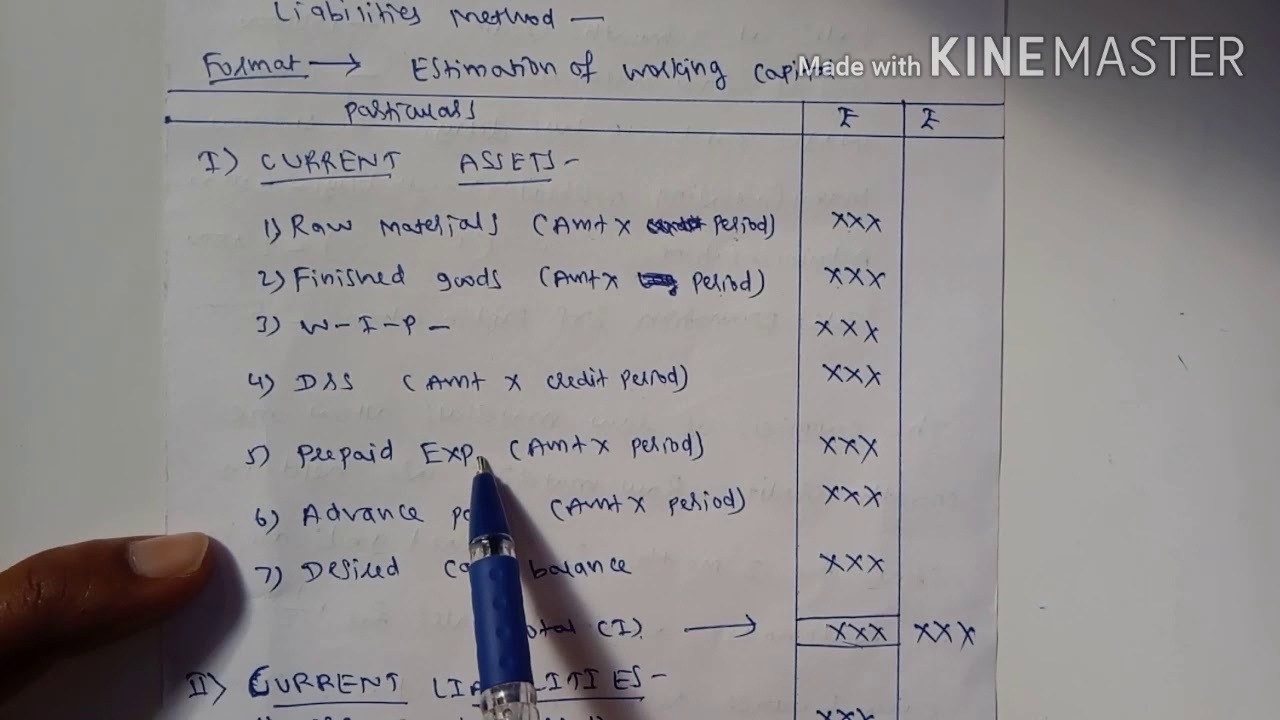 Liabilities Method —
Format → Estimation of working
Made with KINEMASTER
Particulars ₹ ₹
I) CURRENT ASSETS -
1) Raw Materials (Amt x Period) XXX
2) Finished goods (Amt x Period) XXX
3) W-I-P - XXX
4) DRS (Amt x credit period) XXX
5) Prepaid Exp. (Amt x period) XXX
6) Advance (Amt x period) XXX
7) Desired balance XXX
(I) → XXX XXX
II) CURRENT LIABILITIES -
XXX